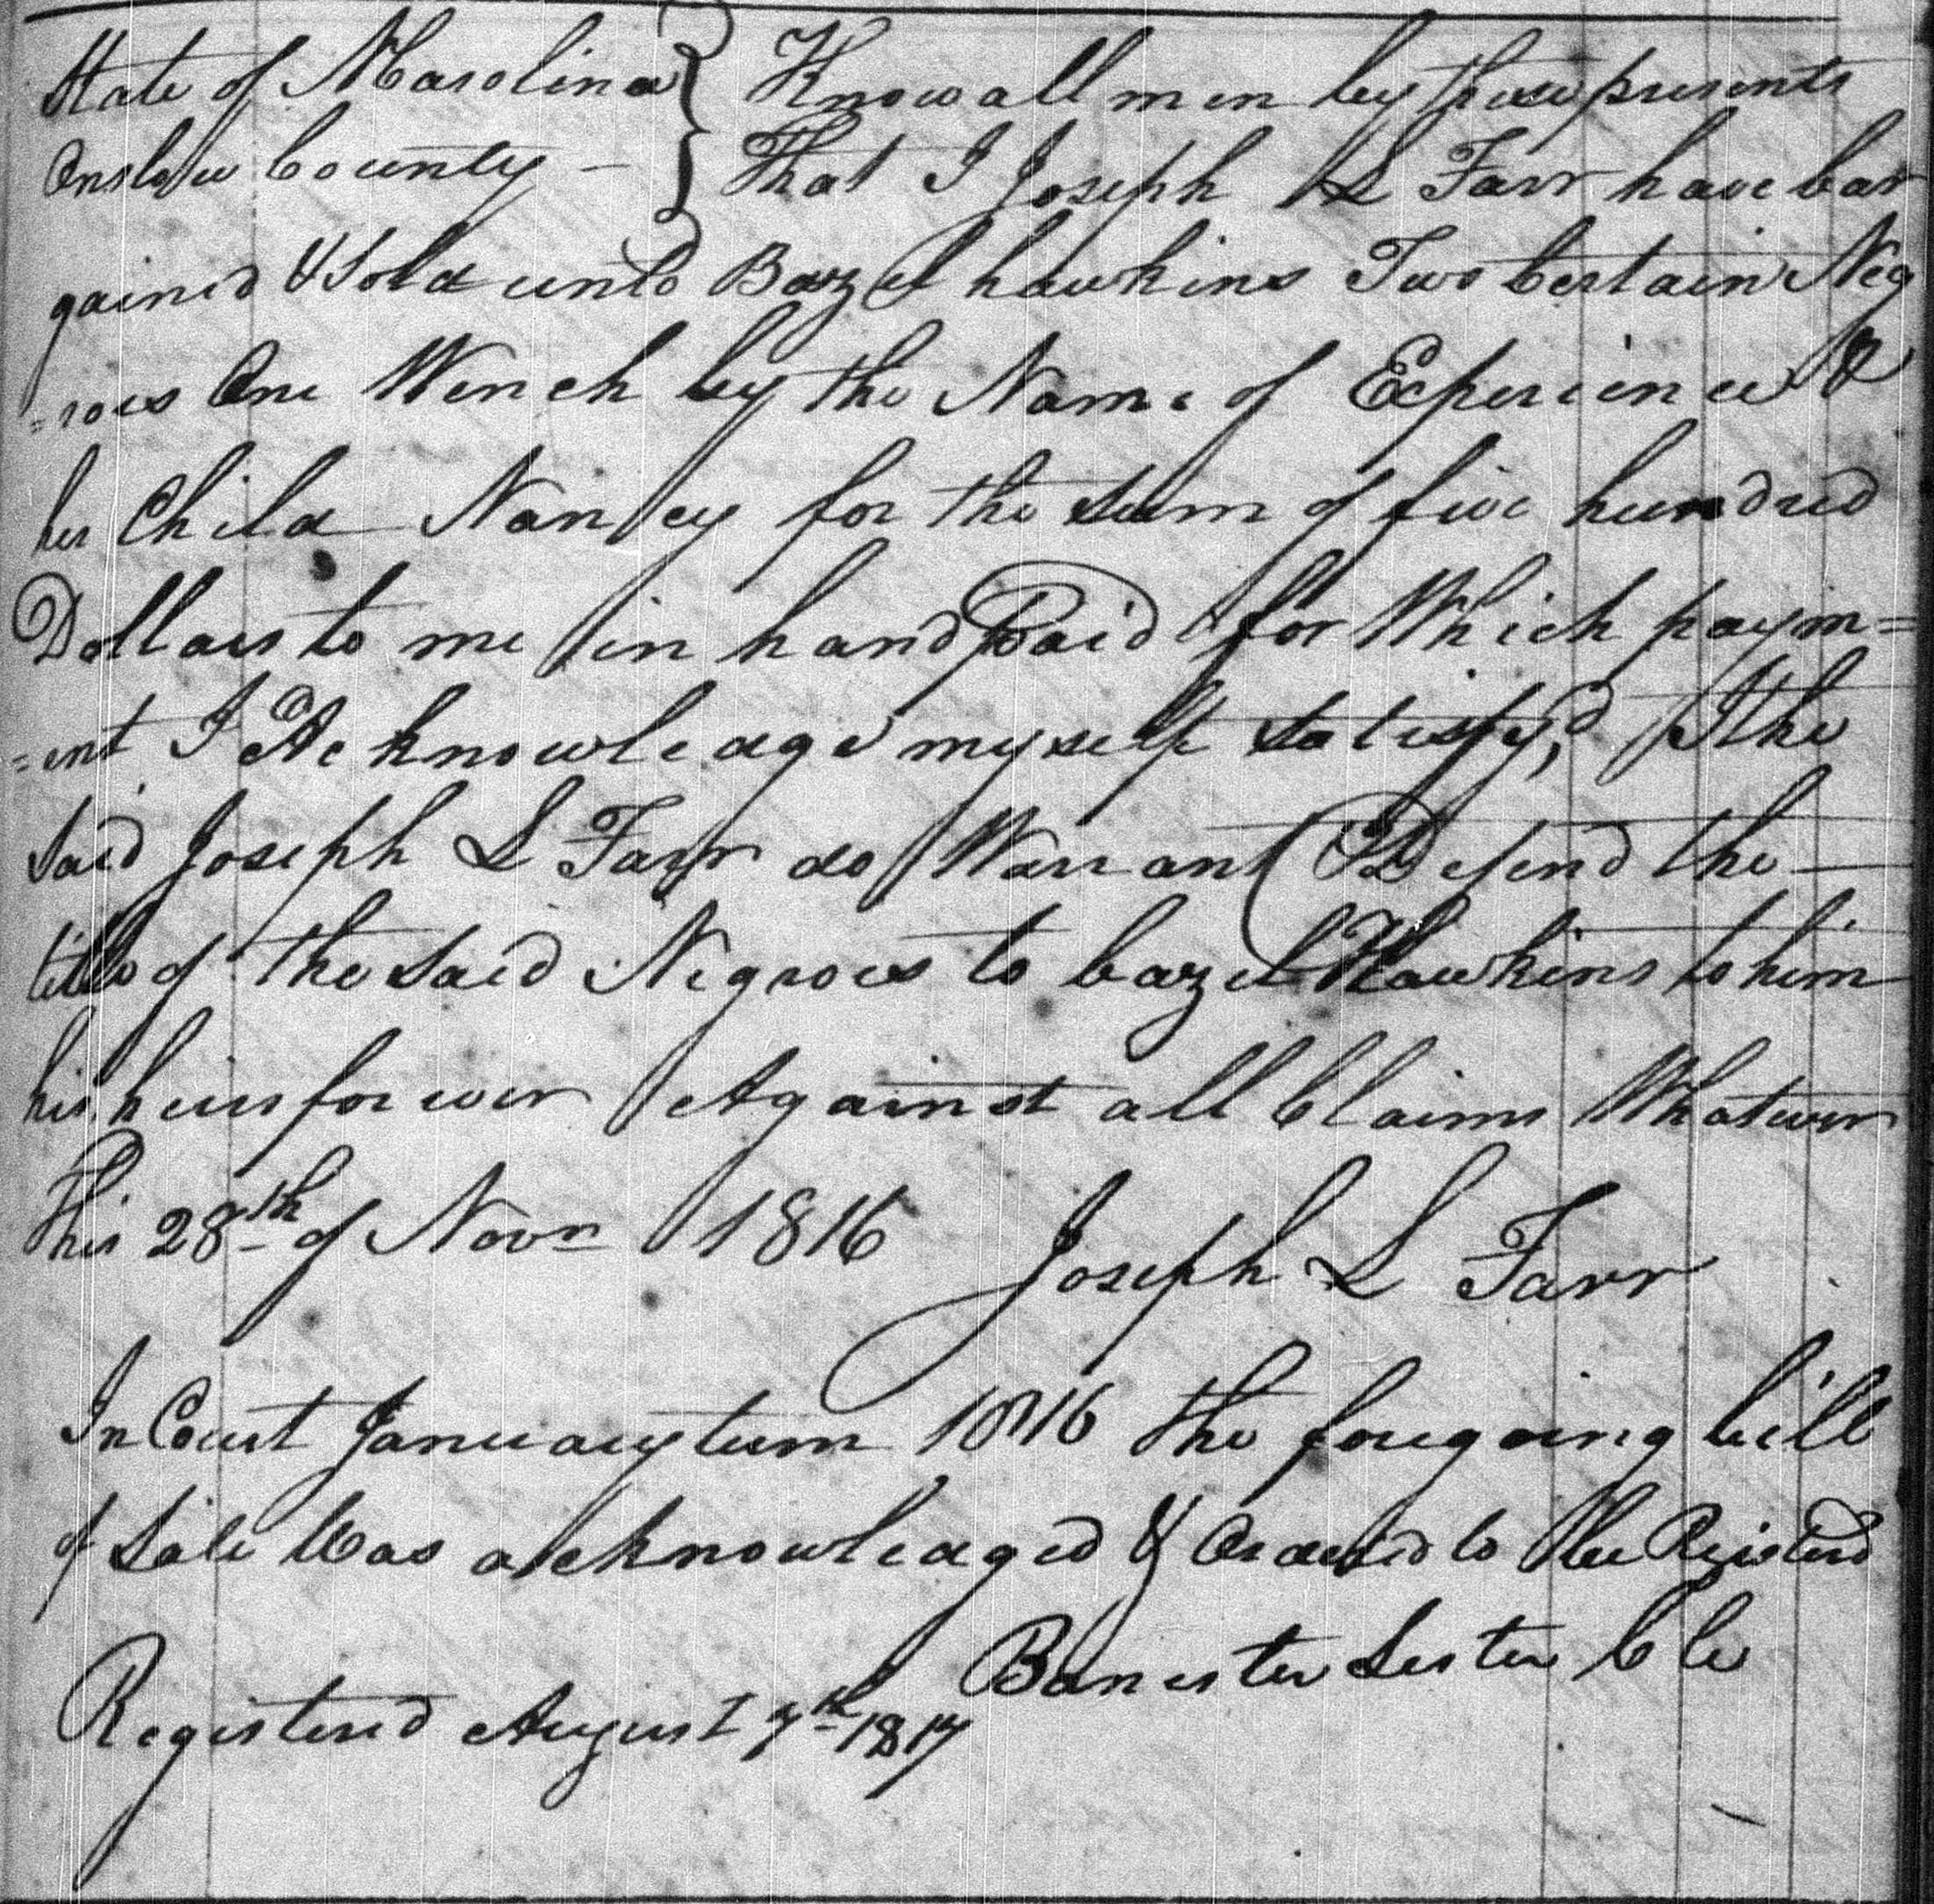 State of N Carolina } Know all men by these presents
Onslow County – } That I Joseph L Farr have bar
gained & Sold unto Bazel hawkins Two Certain Neg
=roes One Wench by the Name of Experience &
her Child Nancy for the Sum of five hundred
Dollars to me in hand Paid for Which paym=
=ent I Acknowledge myself satisfy,d I the
Said Joseph L Farr do Warrant & Defend the —
title of the Said Negroes to bazel Hawkins to him
his heirs forever Against all Claims Whatever
This 28th of Novr 1816 Joseph L Farr
In Court January term 1816 the foregoing bill
of Sale Was acknowledged & Ordered to be Registerd
Banester Lester Clk
Registered August 7th 1817